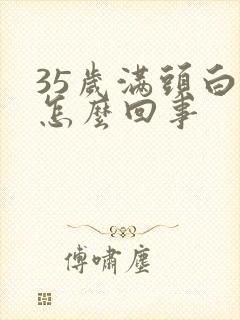 35歲滿頭白
怎麼回事
傅嘯塵